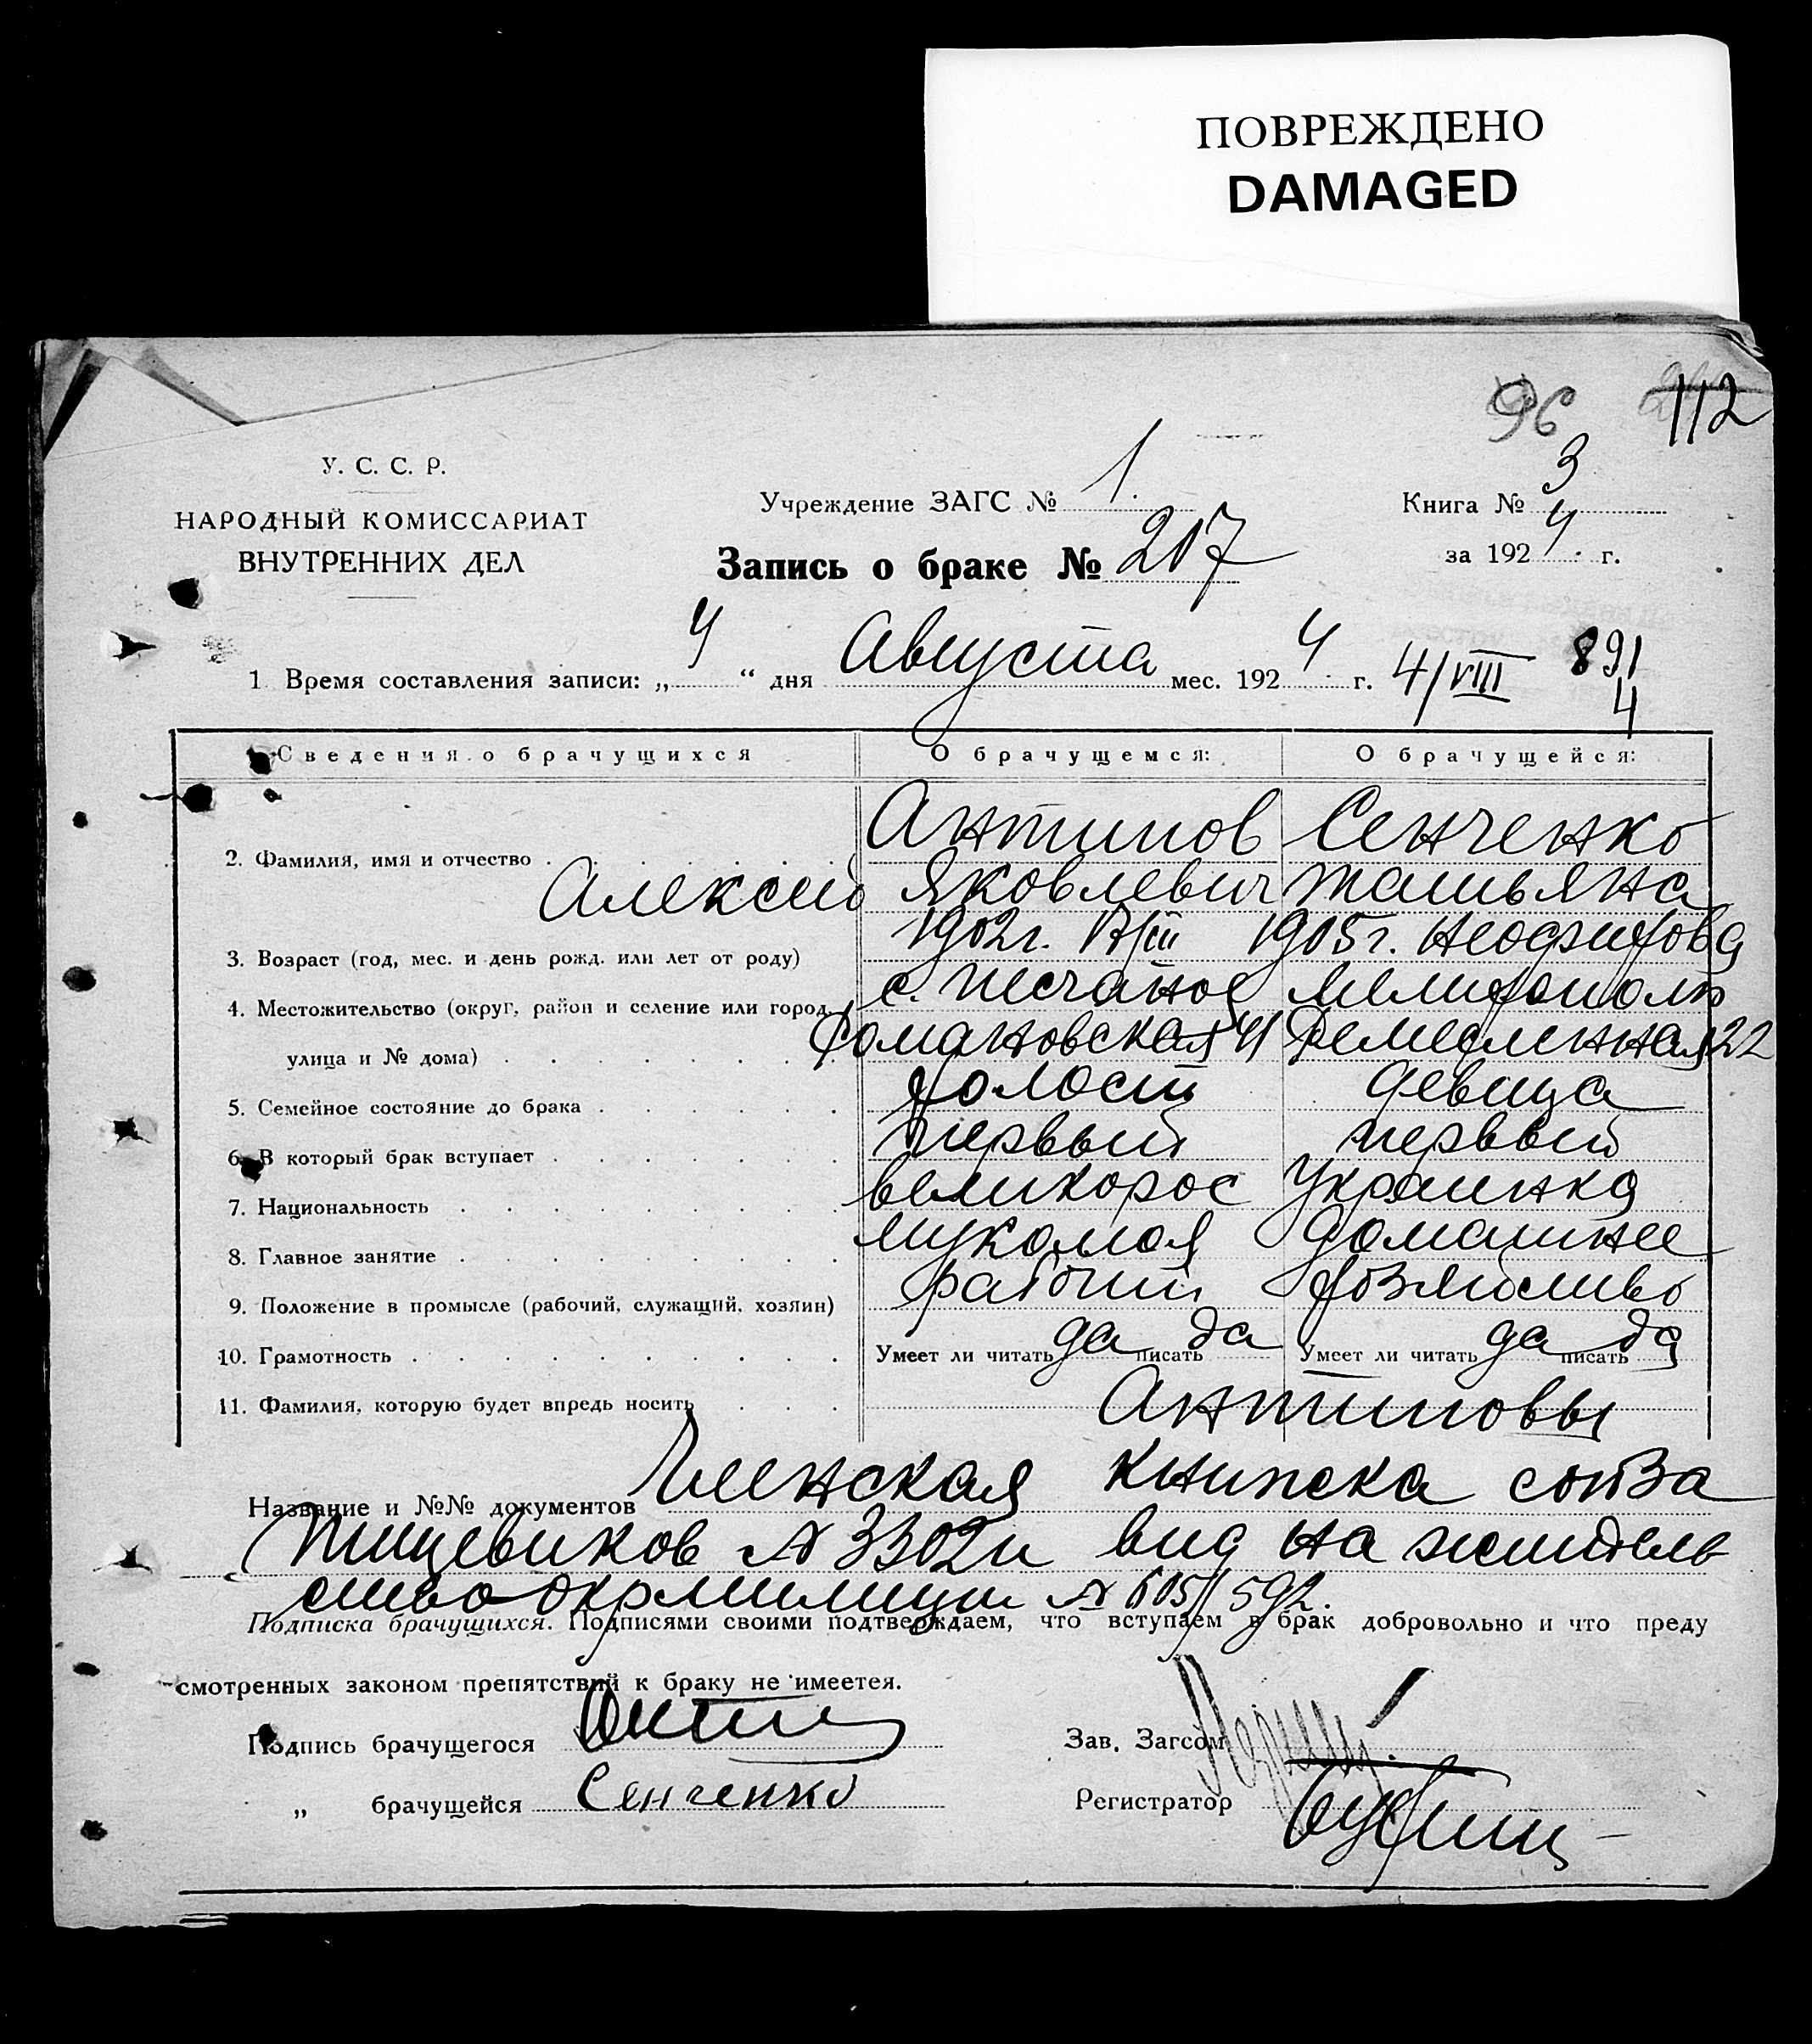 ПОВРЕЖДЕНО
DAMAGED
96 112
У. С. С. Р.
НАРОДНЫЙ КОМИССАРИАТ
ВНУТРЕННИХ ДЕЛ
Учреждение ЗАГС № 1.
Книга № 3
за 1924 г.
Запись о браке № 207
1 Время составления записи: „4" дня Августа мес. 1924 г. 4/VIII 891
4
Сведения о брачущихся О брачущемся: О брачущейся:
2. Фамилия, имя и отчество Антипов Сенченко
Алексей Яковлевич Татьяна
3. Возраст (год, мес. и день рожд. или лет от роду) 1902г. 1905г. Неофитова
4. Местожительство (округ, район и селение или город, с. Песчаное Мелитополь
улица и № дома) Романовская 41 Ремесленная 22
5. Семейное состояние до брака холост девица
6. В который брак вступает первый первый
7. Национальность великорос Украинка
8. Главное занятие мукомол домашнее
9. Положение в промысле (рабочий, служащий, хозяин) рабочий хозяйство
10. Грамотность Умеет ли читать да писать да Умеет ли читать да писать да
11. Фамилия, которую будет впредь носить Антиповы
Название и №№ документов Членская книжка союза
Пищевиков № 3302 и вид на житель
ство окрмилиции № 605/592.
Подписка брачущихся. Подписями своими подтверждаем, что вступаем в брак добровольно и что преду
смотренных законом препятствий к браку не имеется.
Подпись брачущегося
Зав. Загсом
„ брачущейся Сенченко
Регистратор